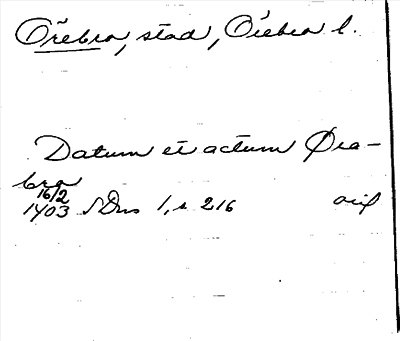 Örebro, stad, Örebro l.
Datum et actum Øre-
bro
16/2
1403 SDns 1, s 216 orig